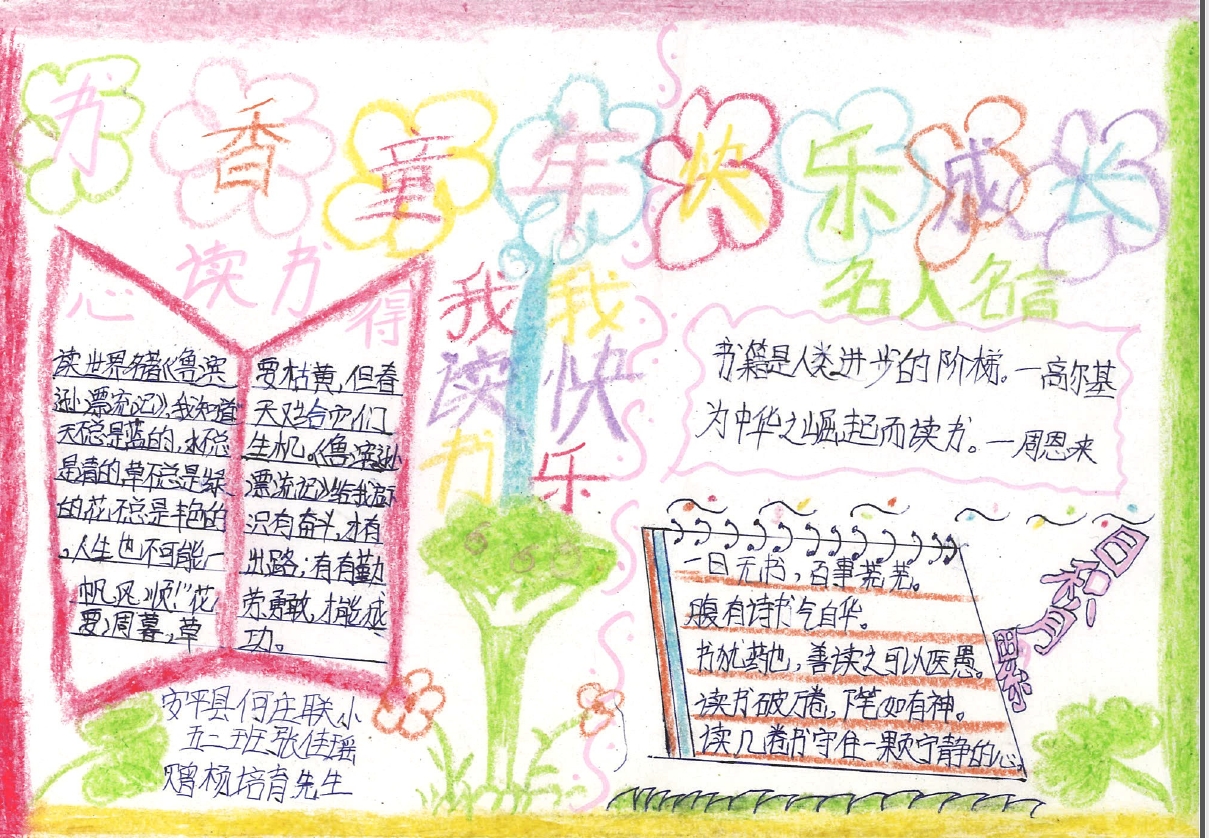 书香童年快乐成长
读书心得
读世界名著《鲁滨
逊漂流记》,我知道
天总是蓝的,水不总
是青的草不总是绿
的花不总是丰色的
,人生也不可能一
帆风顺!”花
要凋暮,草
要枯黄,但春
天又给它们
生机。《鲁滨逊
漂流记》给我启
只有奋斗,才有
出路;有有勤
劳勇敢,才能成
功。
我读书
我快乐
名人名言
书籍是人类进步的阶梯。—高尔基
为中华之崛起而读书。—周恩来
日积月累
一日无书,百事荒芜。
腹有诗书气自华。
书犹药也,善读之可以医愚。
读书破万卷,下笔如有神。
读几卷书守住一颗宁静的心。
安平县何庄联小
五二班张佳瑶
赠杨培育先生